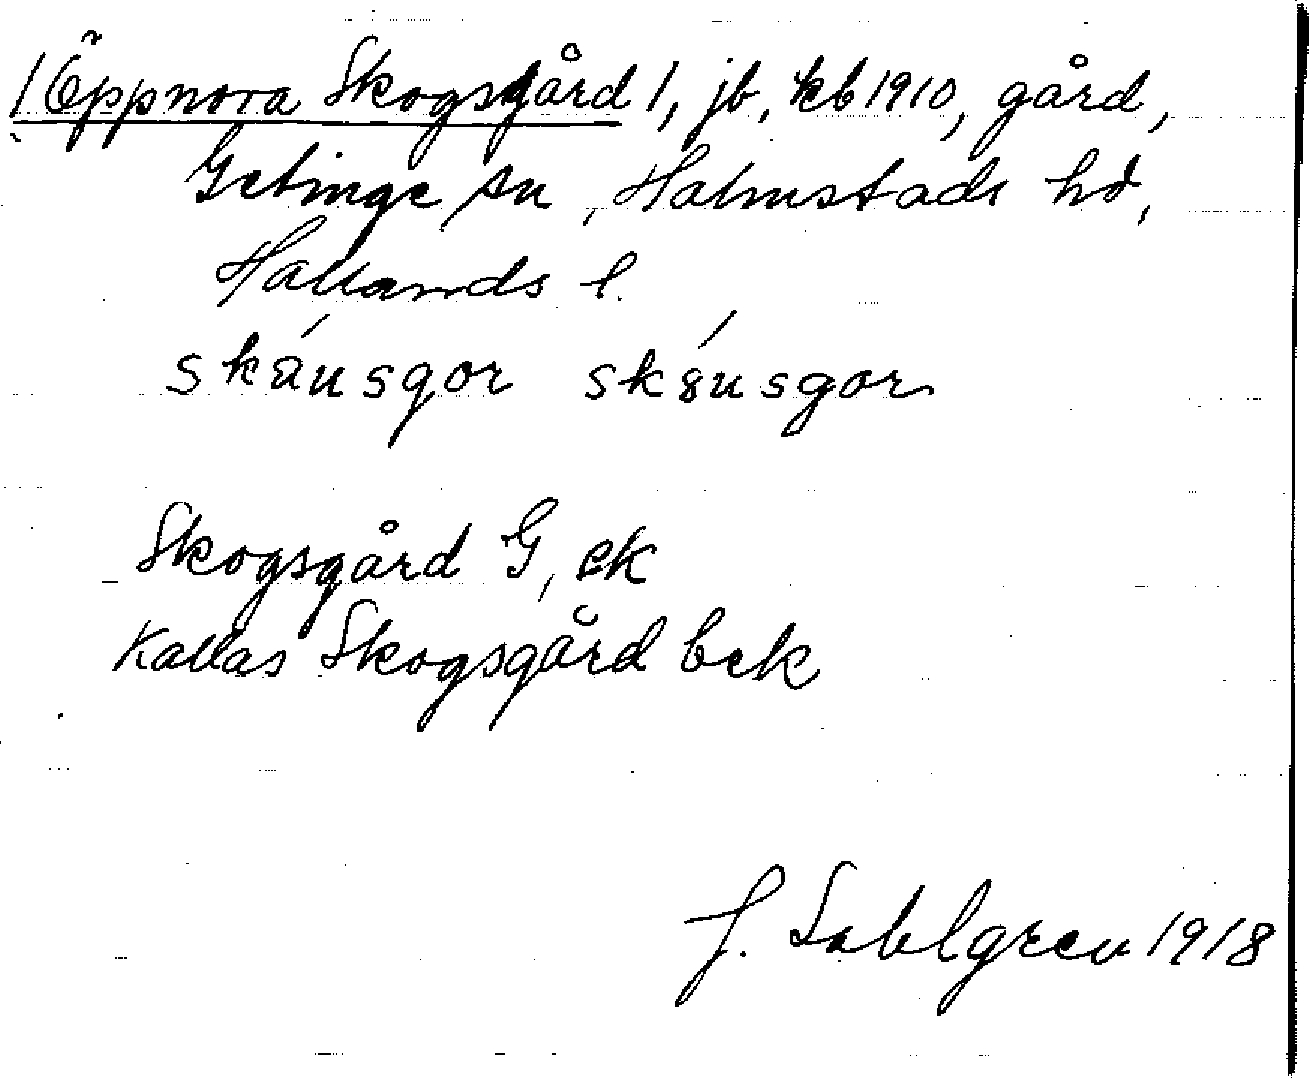 /Öppnora Skogsgård/, jb, kb 1910, gård,
Getinge sn, Halmstads hd,
Hallands l.
skáusgor skóusgor
Skogsgård G, ek
Kallas Skogsgård bek
J. Sahlgren 1918